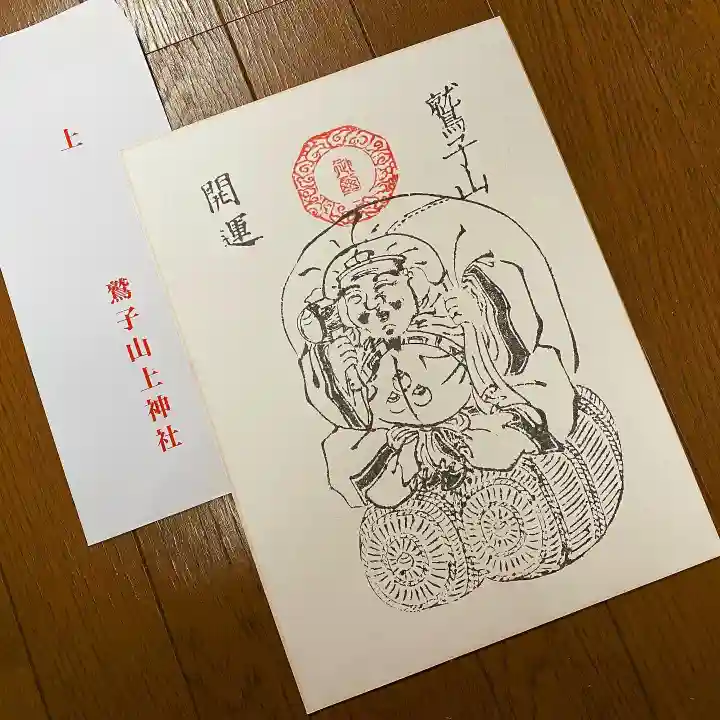 上
鷲子山上神社
鷲子山
開運